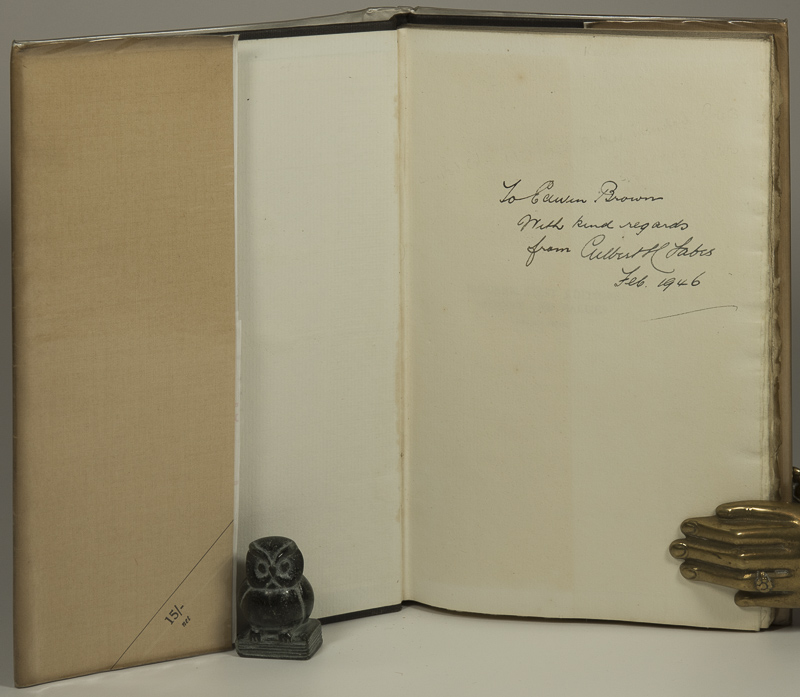 15/-
net
To Edwin Brown
With kind regards
from Gilbert H Fabes
Feb. 1946